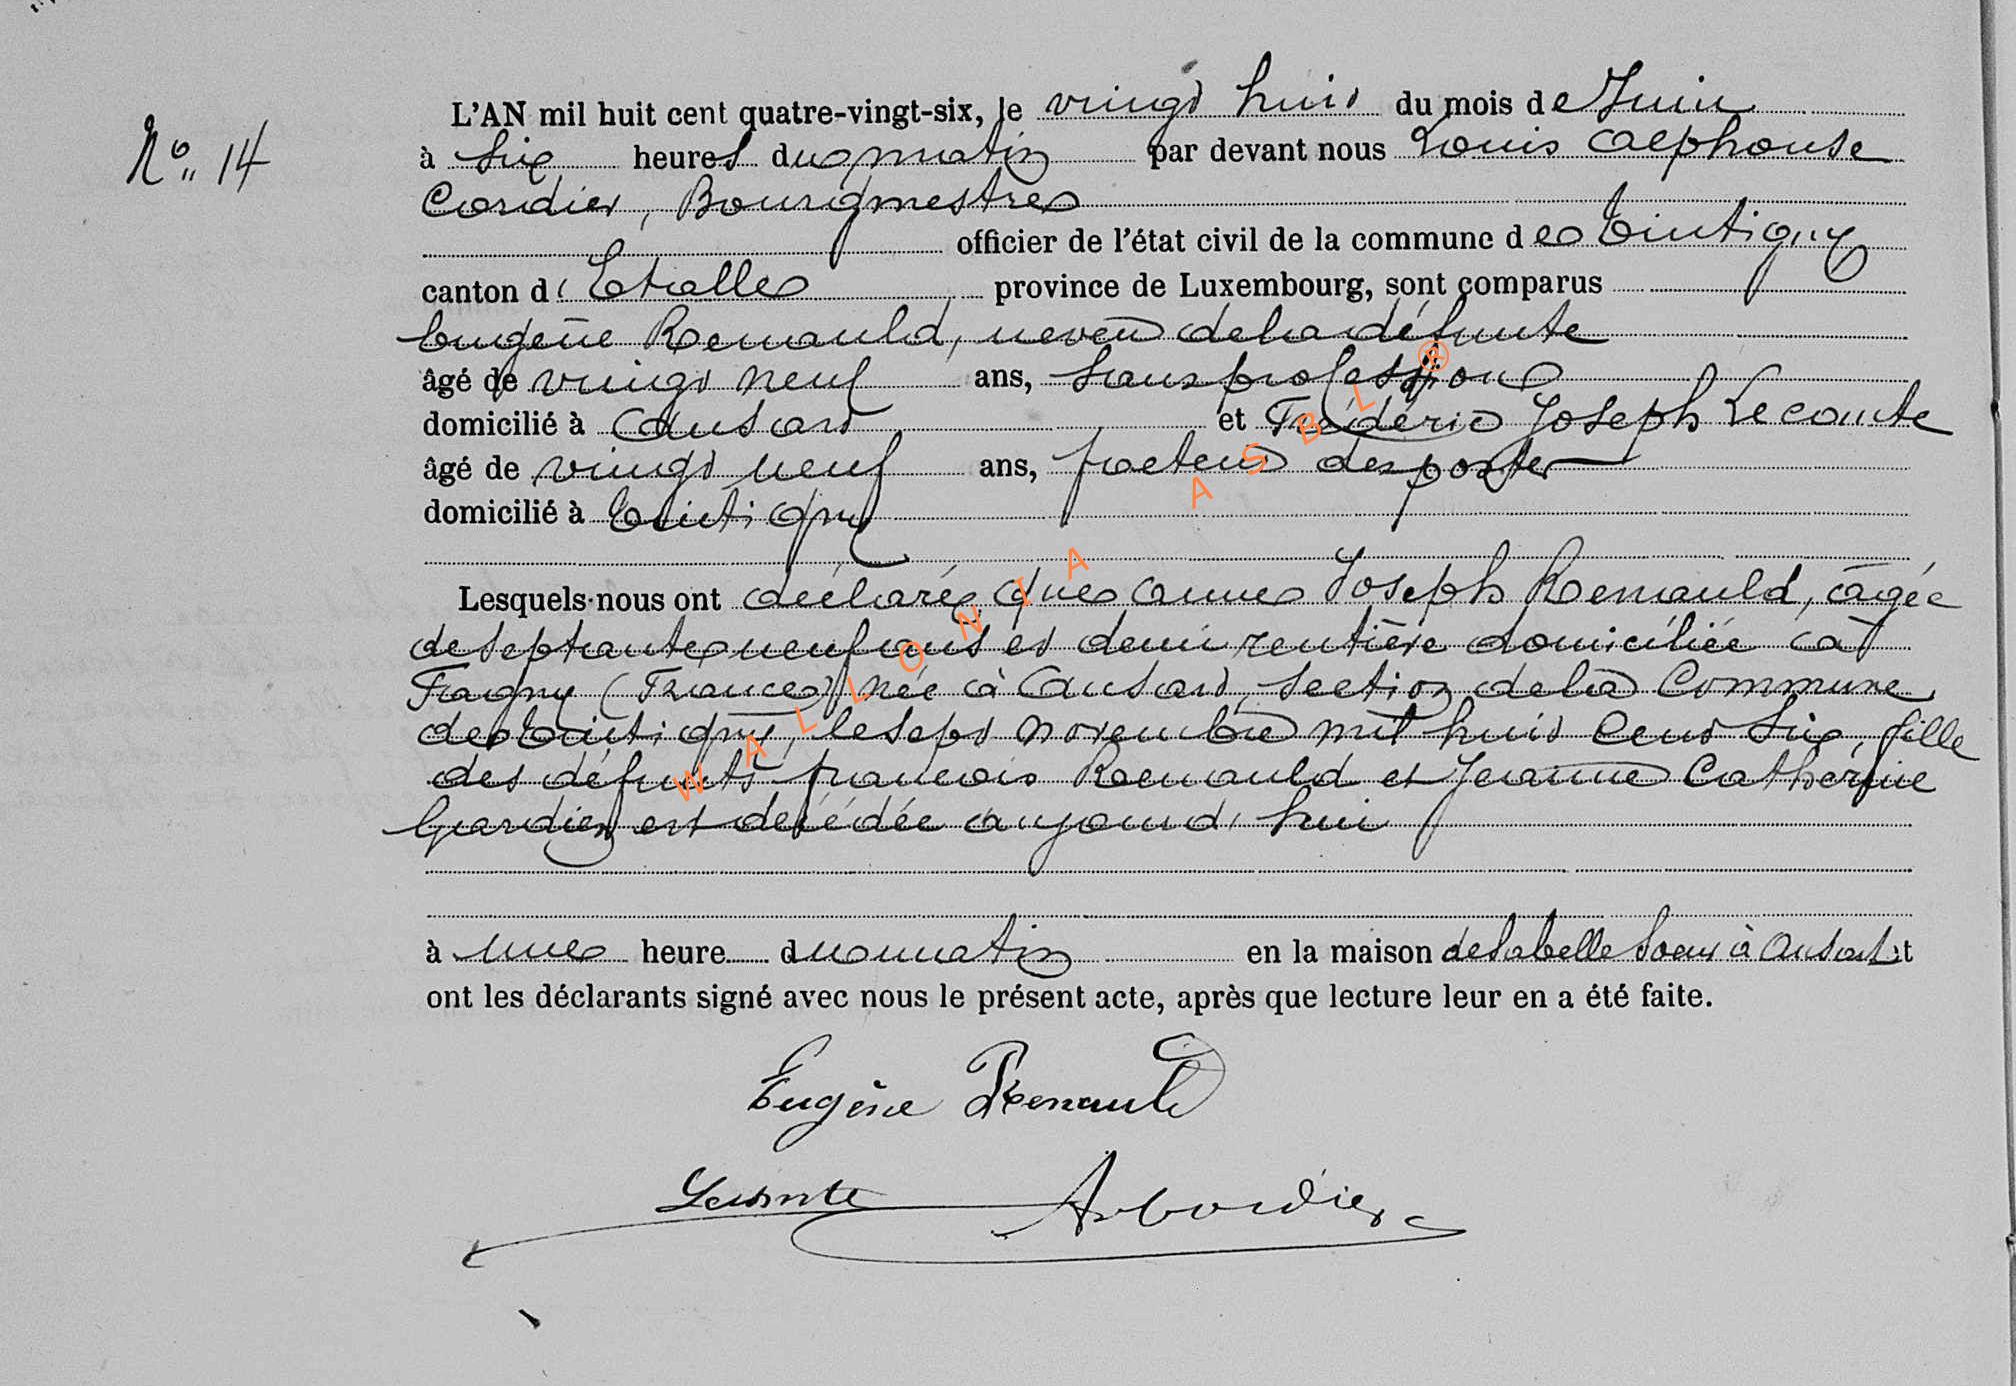 N° 14
L'AN mil huit cent quatre-vingt-six, le vingt huit du mois de Juin
à six heures du matin par devant nous Louis Alphonse
Cordier, Bourgmestre
officier de l'état civil de la commune de Tintigny
canton d'Etalle province de Luxembourg, sont comparus
Eugène Renauld, neveu de la défunte
âgé de vingt neuf ans, sans profession
domicilié à Ansart et Frédéric Joseph Lecomte
âgé de vingt neuf ans, facteur des postes
domicilié à Tintigny
Lesquels nous ont déclaré que Anne Joseph Renauld, âgée
de septante neuf ans et demi rentière domiciliée à
Fagny (France) née à Ansart, section de la Commune
de Tintigny, le sept novembre mil huit cent six, fille
des défunts françois Renauld et Jeanne Catherine
Gardien est décédée aujourd'hui
à une heure du matin en la maison de sa belle soeur à Ansart et
ont les déclarants signé avec nous le présent acte, après que lecture leur en a été faite.
Eugène Renauld
Lecomte
Cordier
WALLONIA ASBL®